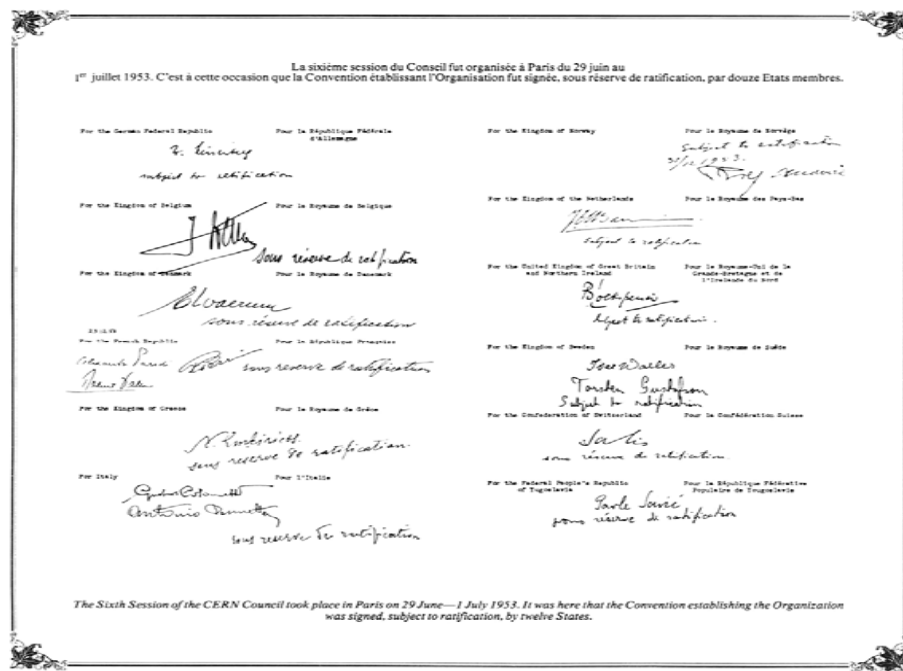 La sixième session du Conseil fut organisée à Paris du 29 juin au
1er juillet 1953. C'est à cette occasion que la Convention établissant l'Organisation fut signée, sous réserve de ratification, par douze Etats membres.
For the German Federal Republic Pour la République Fédérale d'Allemagne
subject to ratification
For the Kingdom of Belgium Pour le Royaume de Belgique
sous réserve de ratification
For the Kingdom of Denmark Pour le Royaume de Danemark
sous réserve de ratification
For the French Republic Pour la République Française
sous reserve de ratification
For the Kingdom of Greece Pour le Royaume de Grèce
sous reserve de ratification.
For Italy Pour l'Italie
Antonio
sous reserve de ratification
For the Kingdom of Norway Pour le Royaume de Norvège
Subject to ratification
1953.
For the Kingdom of the Netherlands Pour le Royaume des Pays-Bas
subject to ratification
For the United Kingdom of Great Britain and Northern Ireland Pour le Royaume-Uni de la Grande-Bretagne et de l'Irelande du Nord
subject to ratification.
For the Kingdom of Sweden Pour le Royaume de Suède
Torsten Gustafson
Subject to ratification
For the Confederation of Switzerland Pour la Confédération Suisse
sous réserve de ratification.
For the Federal People's Republic of Yugoslavia Pour la République Fédérative Populaire de Yougoslavie
Pavle Savić
sous réserve de ratification
The Sixth Session of the CERN Council took place in Paris on 29 June—1 July 1953. It was here that the Convention establishing the Organization
was signed, subject to ratification, by twelve States.